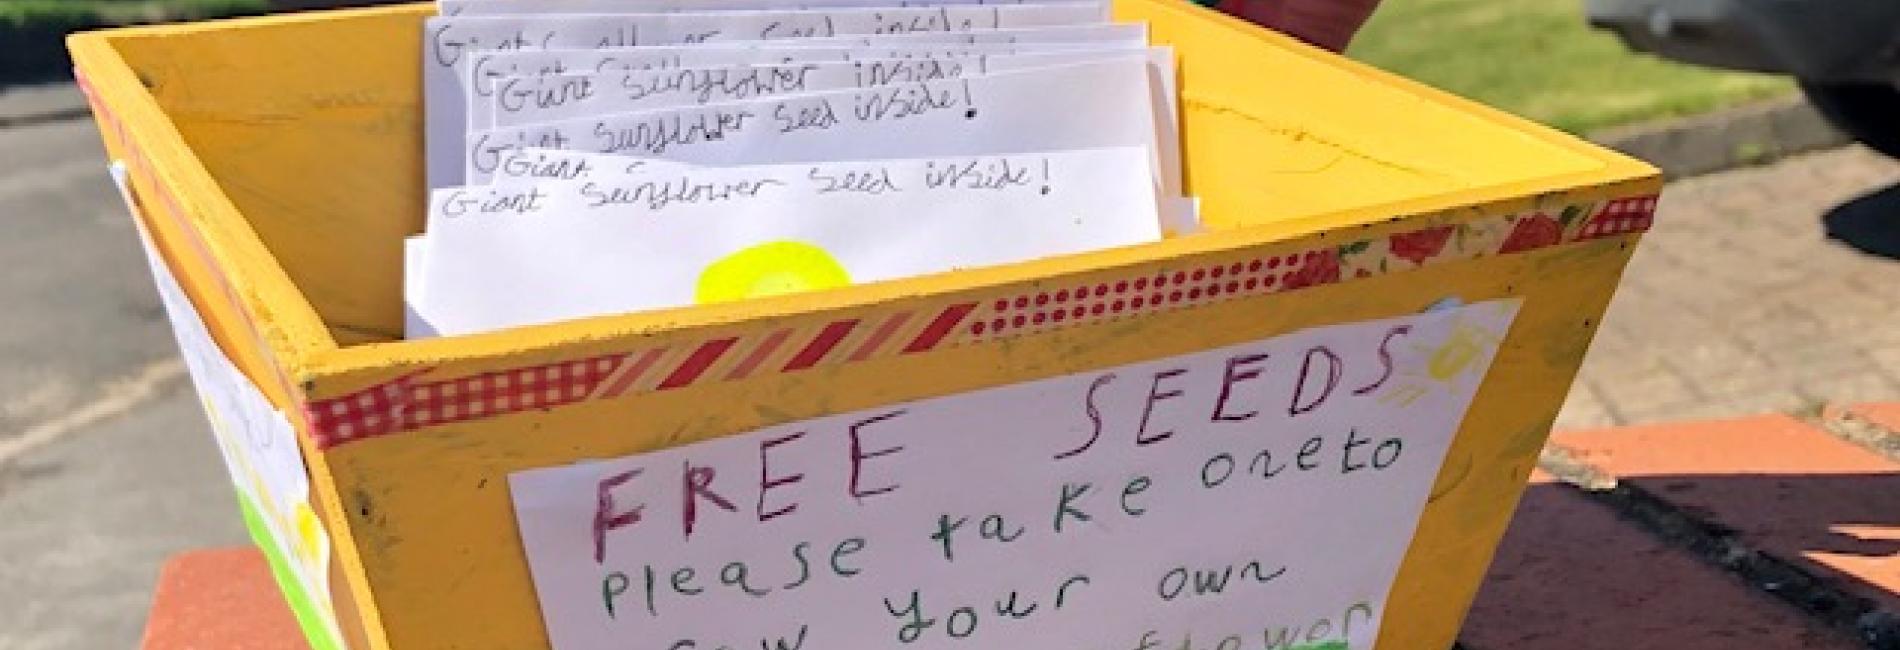 Giant
Seed inside!
Giant Sunflower inside!
Giant Sunflower Seed inside!
Giant
Giant Sunflower Seed inside!
FREE SEEDS
please take one to
sow your own